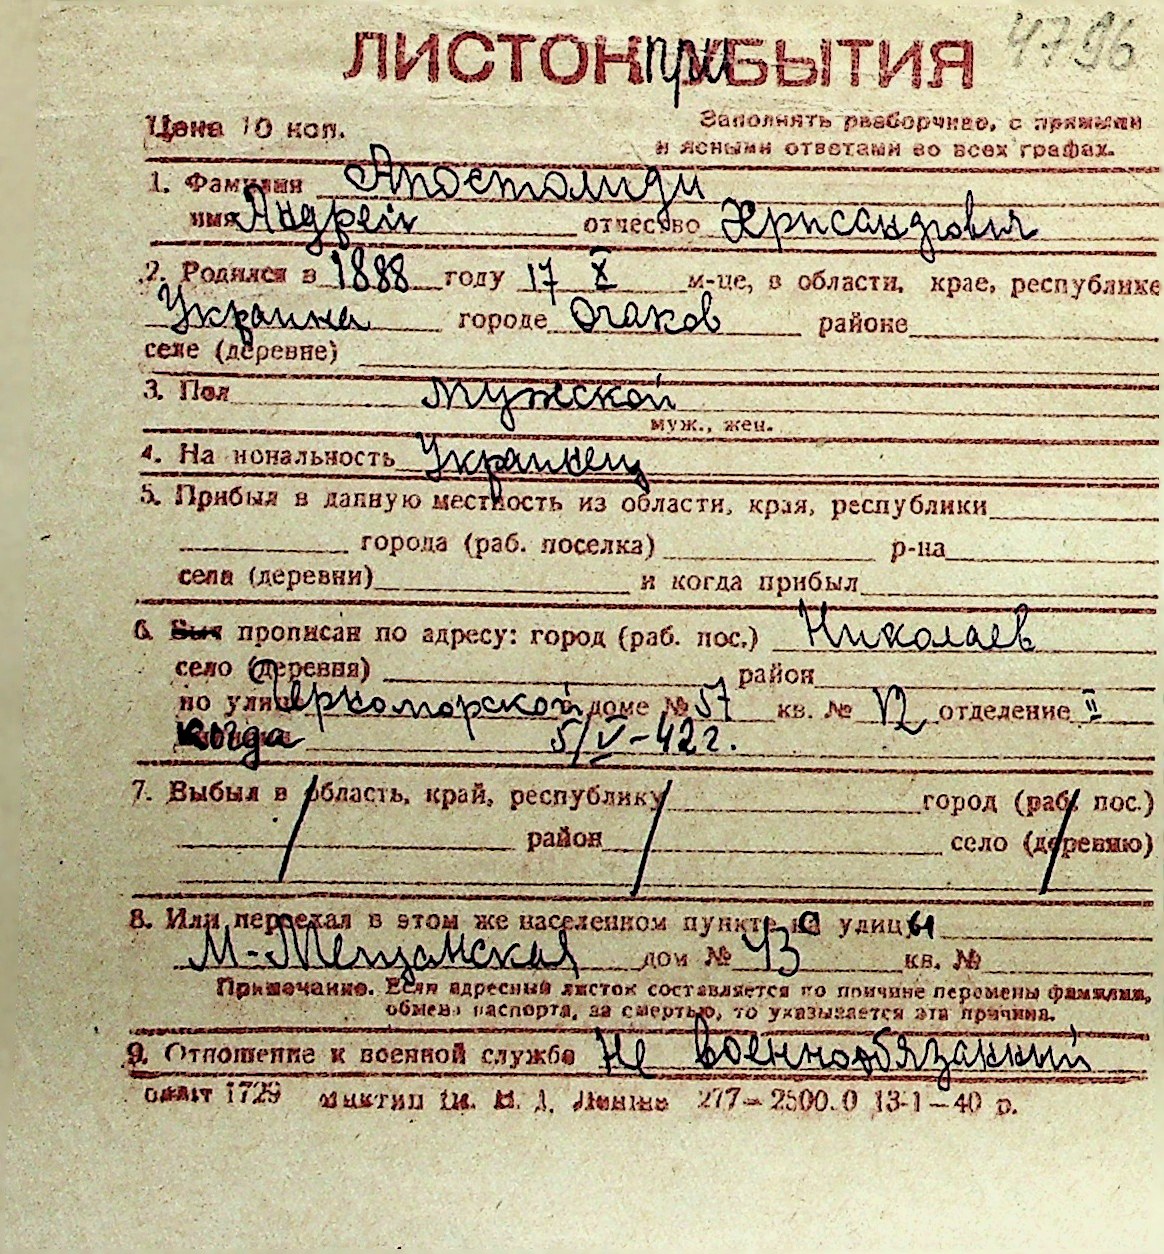 4796
ЛИСТОК при УБЫТИЯ
Цена 10 коп.
Заполнять разборчиво, с прямыми
и ясными ответами во всех графах.
1. Фамилия Апостолиди
имя Андрей отчество Хрисандович
2. Родился в 1888 году 17 X м-це, в области, крае, республике
Украина городе Очаков районе
селе (деревне)
3. Пол мужской
муж., жен.
4. На нональность Украинец
5. Прибыл в данную местность из области, края, республики
города (раб. поселка) р-на
села (деревни) и когда прибыл
6. Был прописан по адресу: город (раб. пос.) Николаев
село (деревня) район
по улице Черноморской доме № 57 кв. № 12 отделение II
когда 5/V-42 г.
7. Выбыл в область, край, республику город (раб. пос.)
район село (деревню)
8. Или переехал в этом же населенном пункте с улицы
М-Мещанская дом № 43 кв. №
Примечание. Если адресный листок составляется по причине перемены фамилии,
обмена паспорта, за смертью, то указывается эта причина.
9. Отношение к военной службе Не военнообязанный
1729 277—2500.0 13-1—40 р.